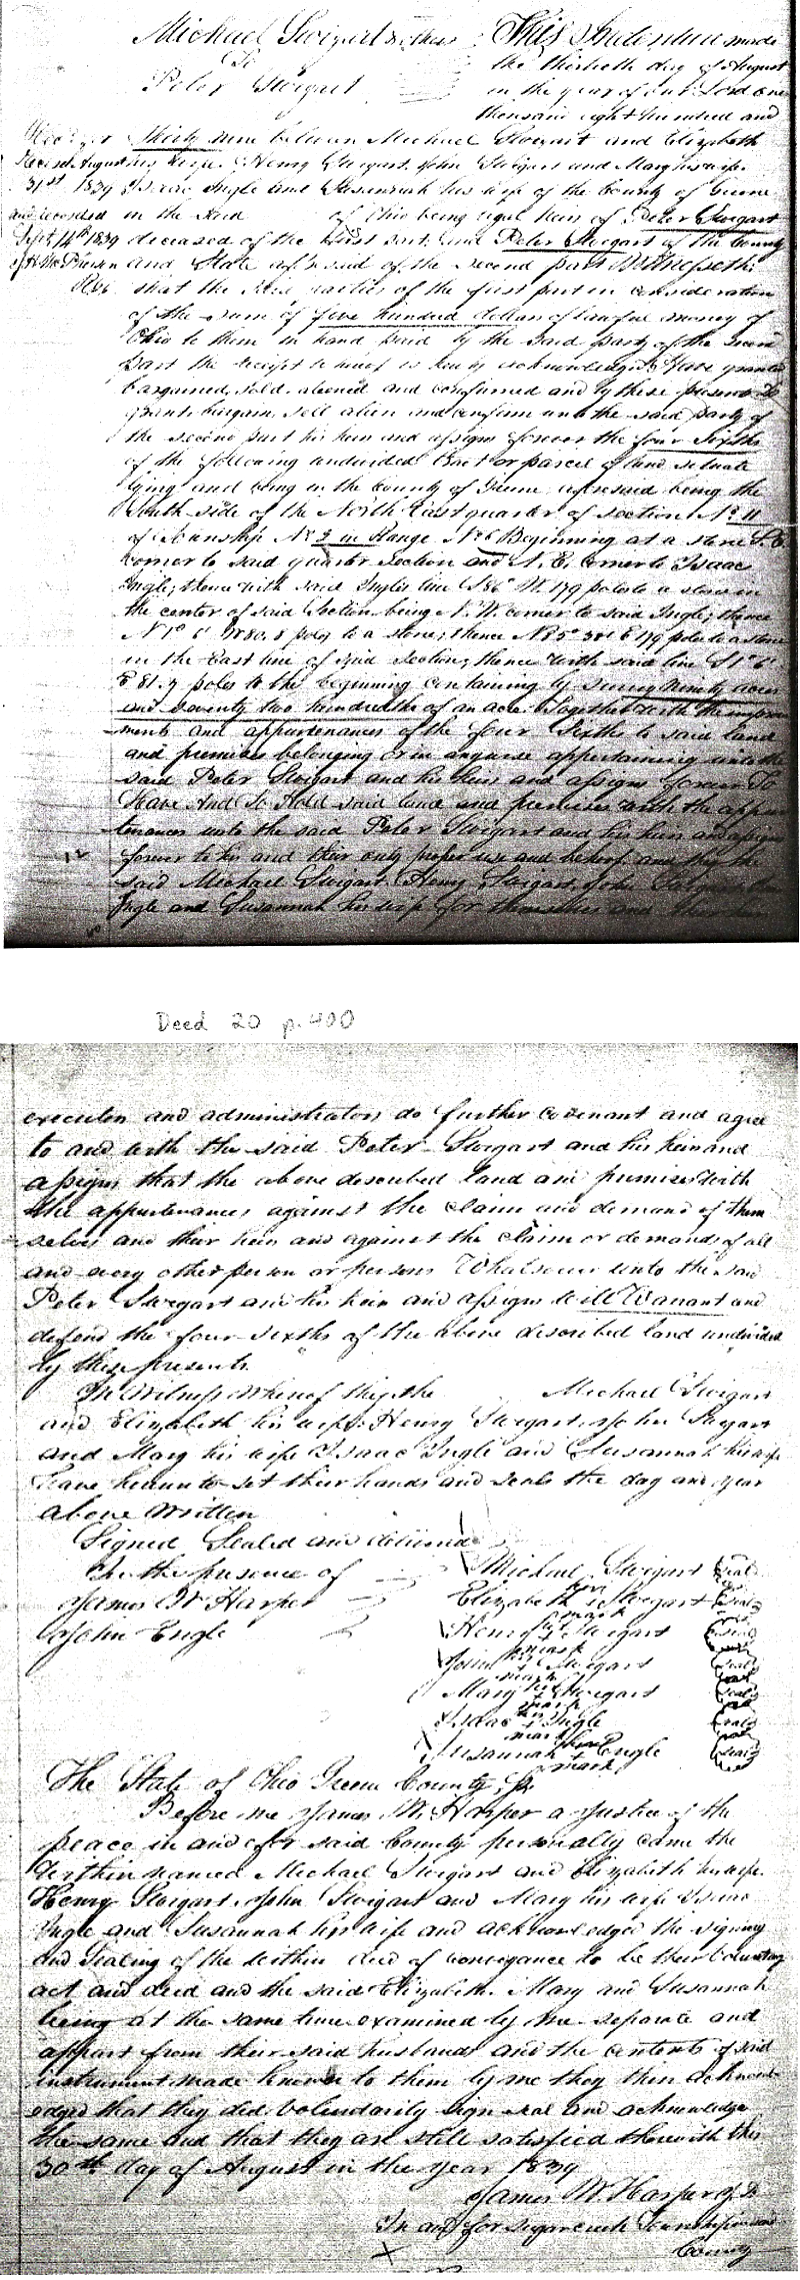 Michael Swigart & others This Indenture made
To the thirtieth day of August
Peter Swigart in the year of our Lord one
thousand eight hundred and
thirty nine between Michael Swigart and Elizabeth
Received August his wife Henry Swigart, John Swigart and Mary his wife
31st 1839 Isaac Ingle and Susannah his wife of the County of Greene
and recorded in the said of Ohio being legal heirs of Peter Swigart
Sept 14th 1839 deceased of the first part, and Peter Swigart of the County
and State aforesaid of the second part Witnesseth
that the said parties of the first part in consideration
of the sum of five hundred dollars of lawful money of
Ohio to them in hand paid by the said party of the second
part the receipt whereof is hereby acknowledged Have granted
bargained, sold, aliened and confirmed and by these presents Do
grant, bargain, sell alien and confirm unto the said party of
the second part his heirs and assigns forever the four Sixths
of the following undivided tract or parcel of land situate
lying and being in the County of Greene aforesaid being the
South side of the North East quarter of section No 11
of Township No 3 in Range No 6 Beginning at a stone S.E.
corner to said quarter section and N.E. corner to Isaac
Ingle; thence with said Ingles line S 86° W. 179 poles to a stone in
the center of said Section being N.W. corner to said Ingle; thence
N 1° 6' W 80.8 poles to a stone; thence N 85° E 179 poles to a stone
in the East line of said section; thence with said line S 1° 6'
E 81.7 poles to the beginning containing by survey Ninety acres
and seventy two hundredths of an acre Together with the improve
ments and appurtenances of the four Sixths to said land
and premises belonging or in anywise appertaining unto the
said Peter Swigart and his heirs and assigns forever To
Have And To Hold said land and premises with the appur
tenances unto the said Peter Swigart and his heirs and assigns
forever to his and their only proper use and behoof and they the
said Michael Swigart, Henry Swigart, John Swigart
Ingle and Susannah his wife for themselves and their heirs
Deed 20 p. 400
executors and administrators do further covenant and agree
to and with the said Peter Swigart and his heirs and
assigns that the above described land and premises with
the appurtenances against the claim and demand of them
selves and their heirs and against the claim or demands of all
and every other person or persons Whatsoever unto the said
Peter Swigart and his heirs and assigns will Warrant and
defend the four sixths of the above described land undivided
by these presents.
In Witness Whereof they the Michael Swigart
and Elizabeth his wife Henry Swigart, John Swigart
and Mary his wife Isaac Ingle and Susannah his wife
have hereunto set their hands and seals the day and year
above written
Signed Sealed and delivered
In the presence of Michael Swigart seal
James W Harper Elizabeth her mark Swigart seal
John Engle Henry his mark Swigart seal
John his mark Swigart seal
Mary her mark Swigart seal
Isaac his mark Ingle seal
Susannah her mark Engle seal
The State of Ohio Greene County, Ss
Before me James W. Harper a Justice of the
peace in and for said County personally came the
within named Michael Swigart and Elizabeth his wife
Henry Swigart, John Swigart and Mary his wife Isaac
Ingle and Susannah his wife and acknowledged the signing
and Sealing of the within deed of conveyance to be their voluntary
act and deed and the said Elizabeth, Mary and Susannah
being at the same time examined by me separate and
appart from their said husbands and the contents of said
instrument made known to them by me they then acknowl
edged that they did voluntarily sign seal and acknowledge
the same and that they are still satisfied therewith this
30th day of August in the year 1839
James W. Harper J.P.
In and for Sugarcreek Township in said
County